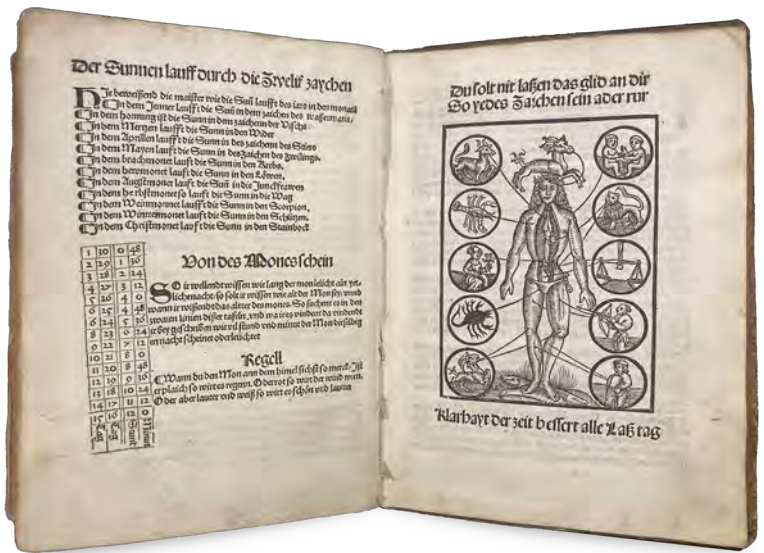 Der Sunnen lauff durch die Zwelif zaychen
Hie beweißend die maister wie die Sun laufft des iars in den monatē
In dem Jenner laufft die Sun in dem zaichen des wassermans,
In dem hornung ist die Sunn in dem zaichenn der Vischs
In dem Mertzen laufft die Sunn in den Wider
In dem Aprillen laufft die Sunn in des zaichenn des Stains
In dem Mayen lauft die Sunn in des Zaichen des zwilings.
In dem brachmonet lauft die Sunn in den Krebs.
In dem hewmonet lauft die Sunn in den Löwen.
In dem Augstmonet lauft die Sun in die Junckfrawen
In dem herbstmonet so lauft die Sunn in die Wag
In dem Weinmonnet laufft die Sunn in den Scorpion.
In dem Wintermonet lauft die Sunn in den Schützen.
In dem Christmonet lauft die Sunn in den Stainbock
1 30 0 48
2 29 1 36
3 28 2 24
4 27 3 12
5 26 4 0
6 25 4 48
7 24 5 36
8 23 6 24
9 22 7 12
10 21 8 0
11 20 8 48
12 19 9 36
13 18 10 24
14 17 11 12
15 16 12 0
Tag Tag Stund Minut
Von des Mones schein
SO ir wellendt wissen wie lang der mon leücht ain yet
lichenacht so solt ir wissen wie alt der Mon sey vnnd
wann ir wissendt das altter des mones. So suchent es in den
zwaien linien disser tafeln, vnd wa ir es vindent da vindendt
ir bey geschriben wie vil stund vnd minut der Mon dieselbig
en nacht scheinet oder leüchtet
Regell
Wann du den Mon ann dem himel sichst so merck/ Ist
er plaich so wirt es regnen. O der rot so wirt der wind wen.
O der aber lauter vnd weiß so wirt es schön vnd lautter
Du solt nit laßen das glid an dir
So yedes Zaichen sein ader rür
Klarhayt der zeit bessert alle Laß tag